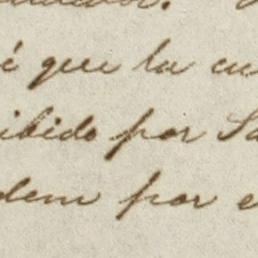 é que la cu
ibido por Sa
dem por e